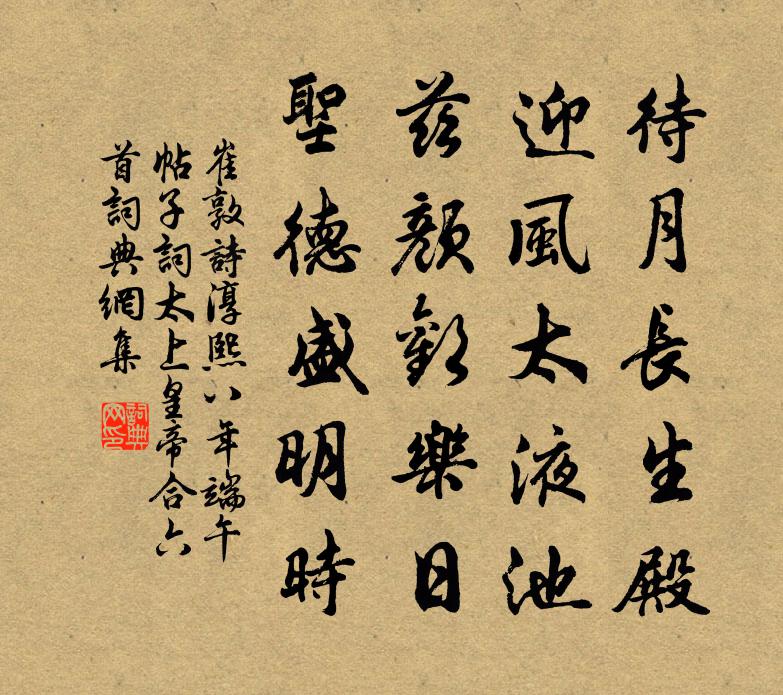 待月長生殿
迎風太液池
慈顏歡樂日
聖德盛明時
崔敦詩淳熙八年端午
帖子詞太上皇帝合六
首詞典網集
詞典
网印